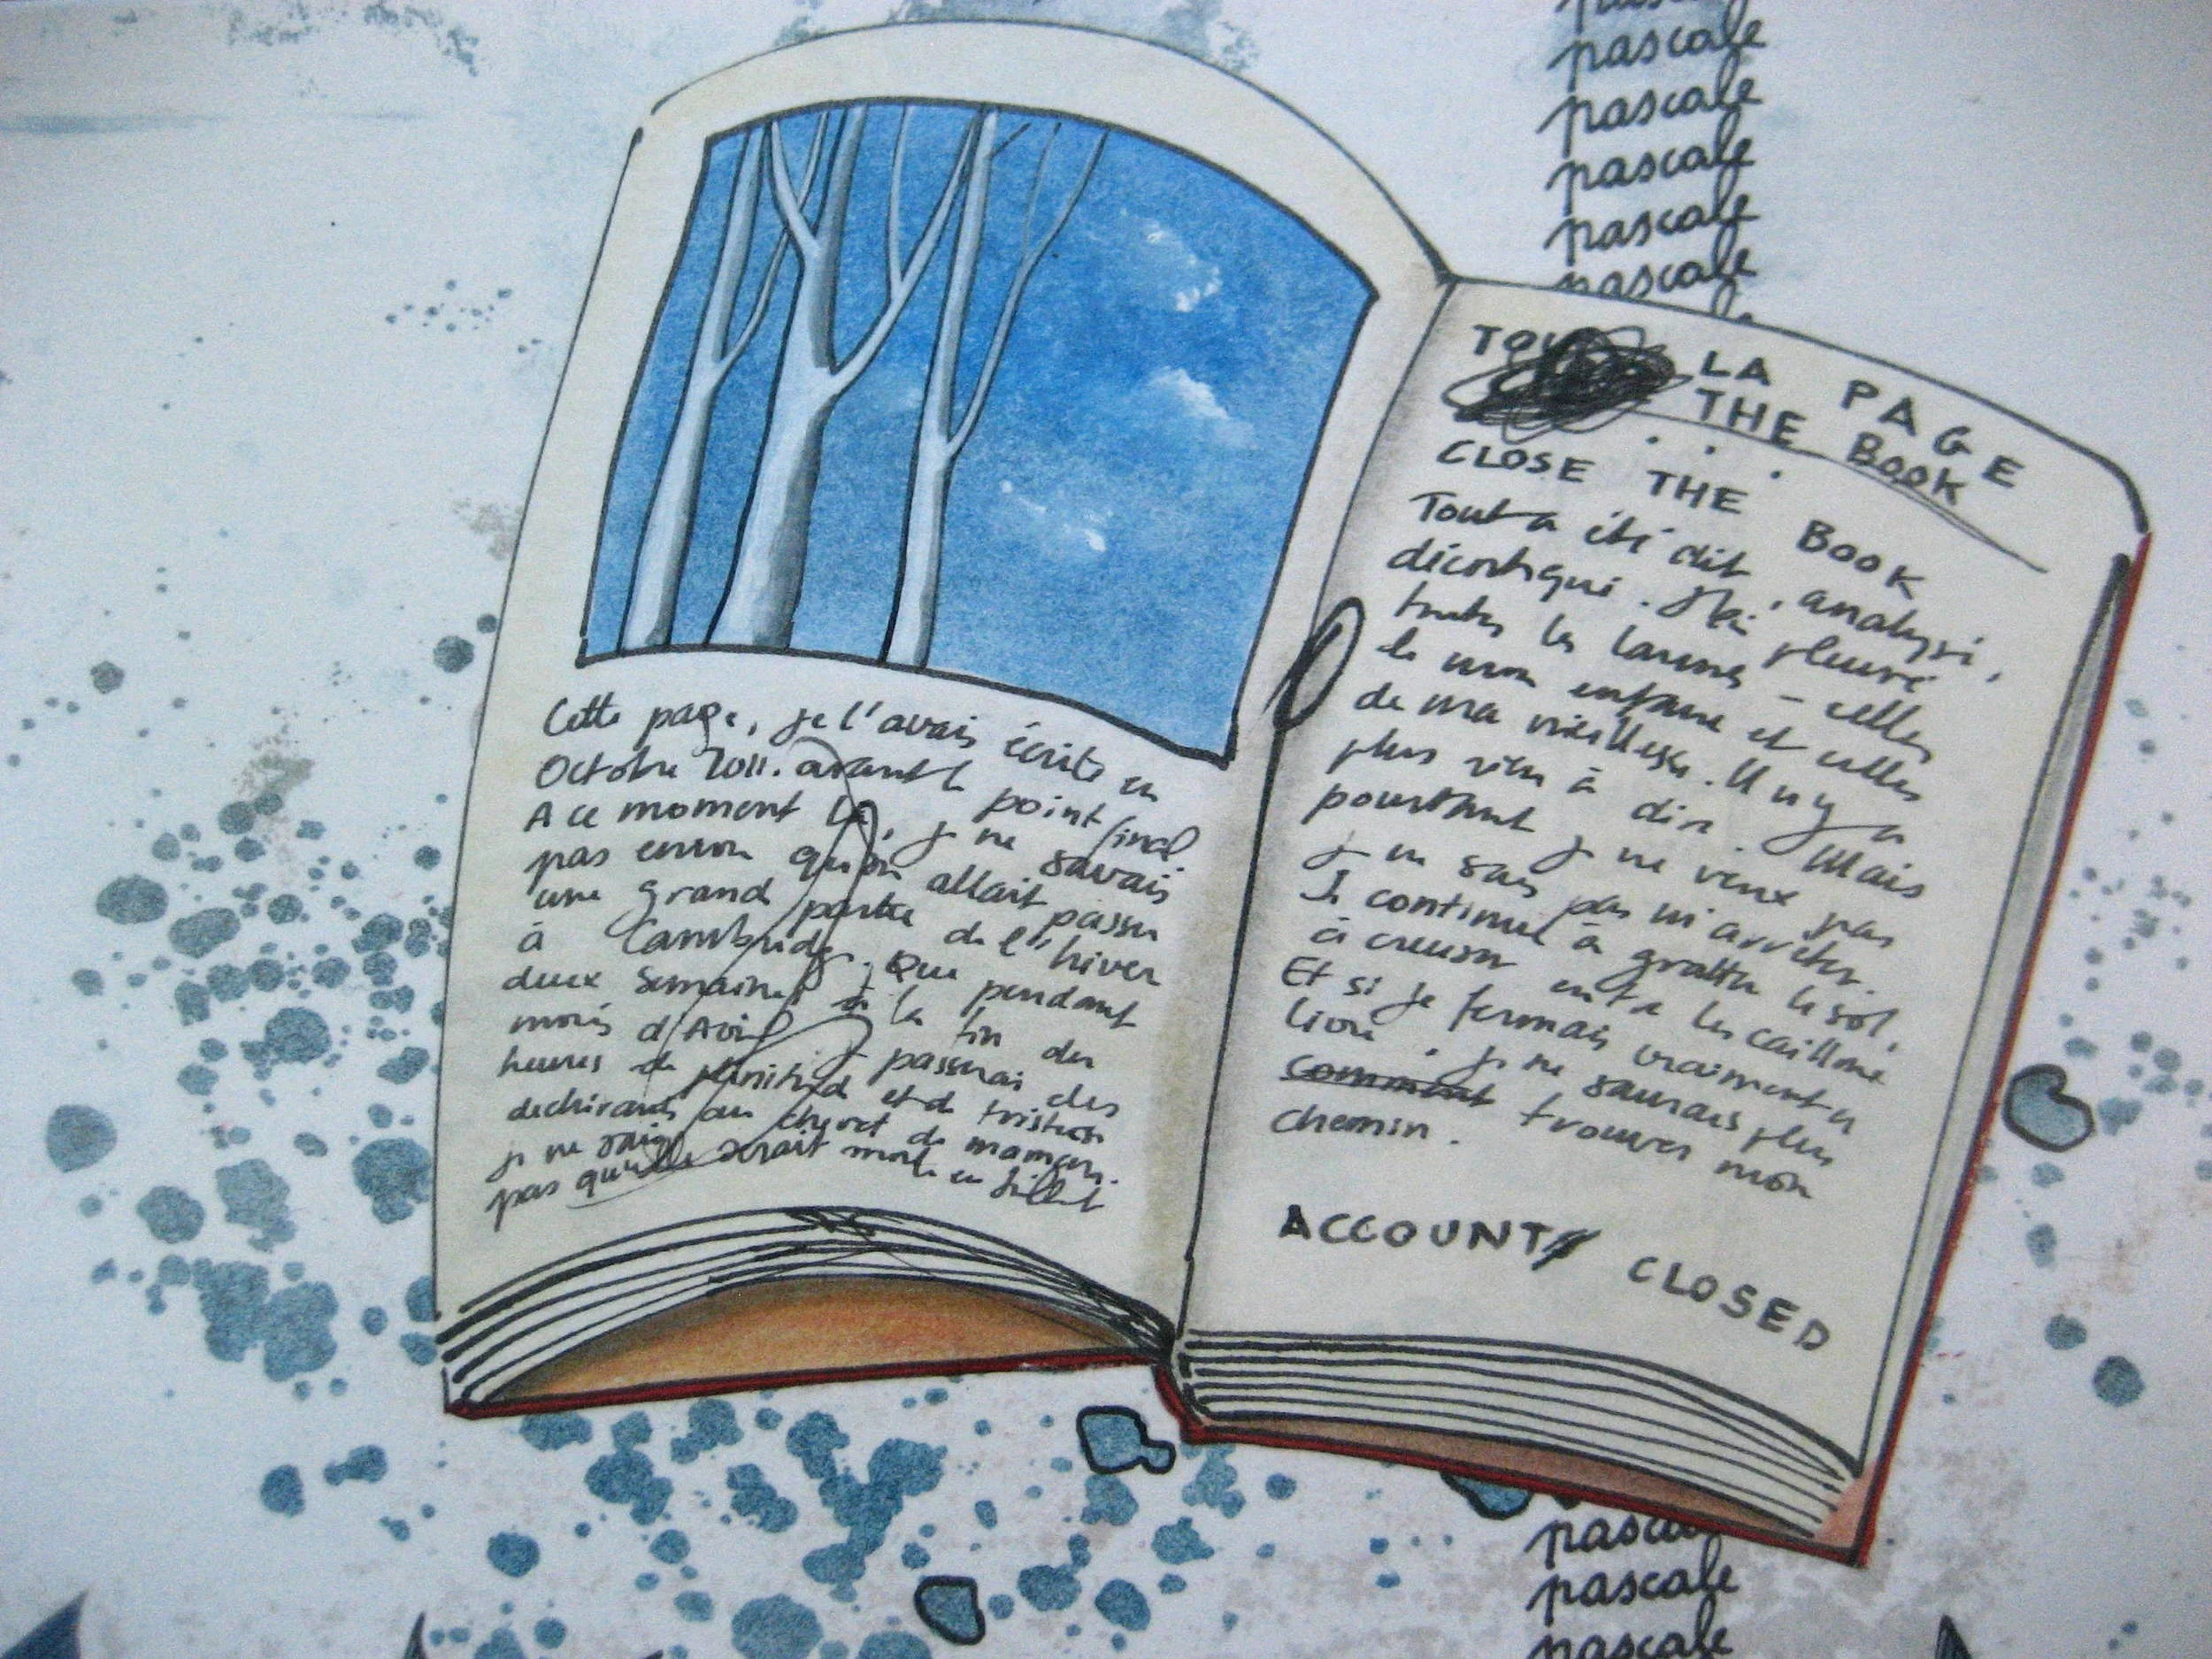 pascale
pascale
pascale
pascale
pascale
Cette page, je l'avais écrite en
Octobre 2011. avant le point final
A ce moment là, je ne savais
pas encore qu'on allait passer
une grand partie de l'hiver
à Cambridge. Que pendant
deux semaines à la fin du
mois d'Avril je passerai des
heures de plénitude et de tristesse
déchirante au chevet de maman.
je ne savais
pas qu'elle serait morte en Juillet
TOU LA PAGE
THE BOOK
...
CLOSE THE BOOK
Tout a été dit, analysé,
décortiqué. J'ai pleuré
toutes les larmes - celles
de mon enfance et celles
de ma vieillesse. Il n'y a
plus rien à dire. Mais
pourtant je ne veux pas
je ne sais pas m'arrêter.
Je continue à gratter le sol,
à creuser entre les cailloux
Et si je fermais vraiment ce
livre, je ne saurais plus
comment trouver mon
chemin.
ACCOUNT CLOSED
pascale
pascale
pascale